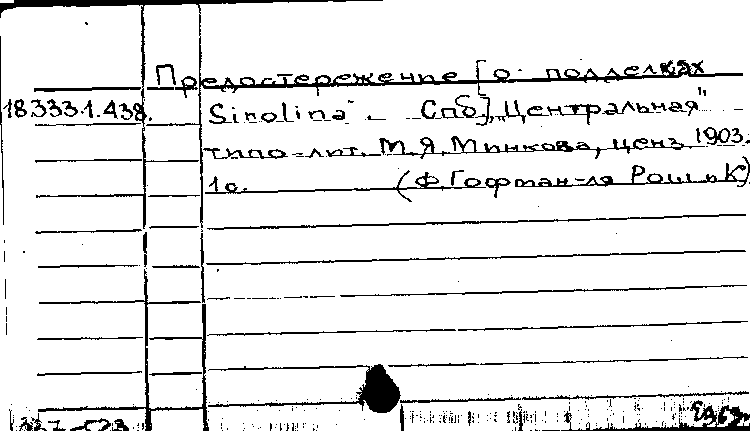 Предостережение [о подделках
18.333.1.438. Sirolina". Спб], „Центральная"
типо-лит. М.Я. Минкова, ценз. 1903.
1с. (Ф. Гофман-ля Рош и К°)